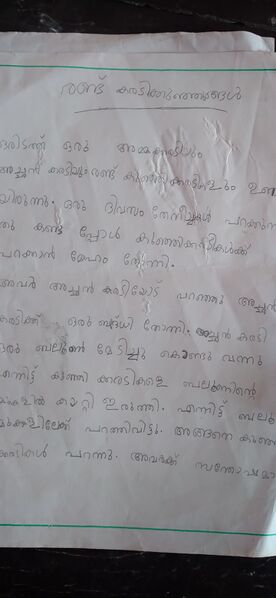 രണ്ട് കരടിക്കുഞ്ഞുങ്ങൾ
ഒരിടത്ത് ഒരു അമ്മക്കരടിയും
അച്ഛൻ കരടിയും രണ്ട് കുഞ്ഞിക്കരടികളും ഉണ്ടാ
യിരുന്നു. ഒരു ദിവസം തേനീച്ചകൾ പറക്കുന്ന
തു കണ്ട പ്പോൾ കുഞ്ഞിക്കരടികൾക്ക്
പറക്കാൻ മോഹം തോന്നി.
അവർ അച്ഛൻ കരടിയോട് പറഞ്ഞു അച്ഛൻ
കരടിക്ക് ഒരു ബുദ്ധി തോന്നി. അച്ഛൻ കരടി
ഒരു ബലൂൺ മേടിച്ചു കൊണ്ടു വന്നു
എന്നിട്ട് കുഞ്ഞി ക്കരടികളെ ബലൂണിന്റെ
മുകളിൽ കയറ്റി ഇരുത്തി. എന്നിട്ട് ബലൂ
മുകളിലേക്ക് പറത്തിവിട്ടു. അങ്ങനെ കുഞ്ഞു
കരടികൾ പറന്നു. അവർക്ക് സന്തോഷമാ